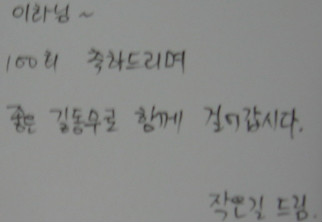 이라님~
100회 축하드리며
좋은 길동무로 함께 걸어갑시다.
작은길 드림.